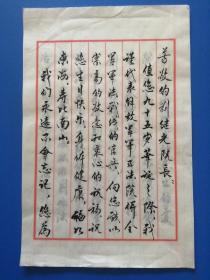 尊敬的刘继光院长:
值您九十五岁华诞之际,我
谨代表解放军军事法院并全
军军事法院的官兵,向您致以
崇高的敬意和衷心的祝福,祝
您生日快乐,身体健康,福如
东海,寿比南山。
我们永远不会忘记,您为